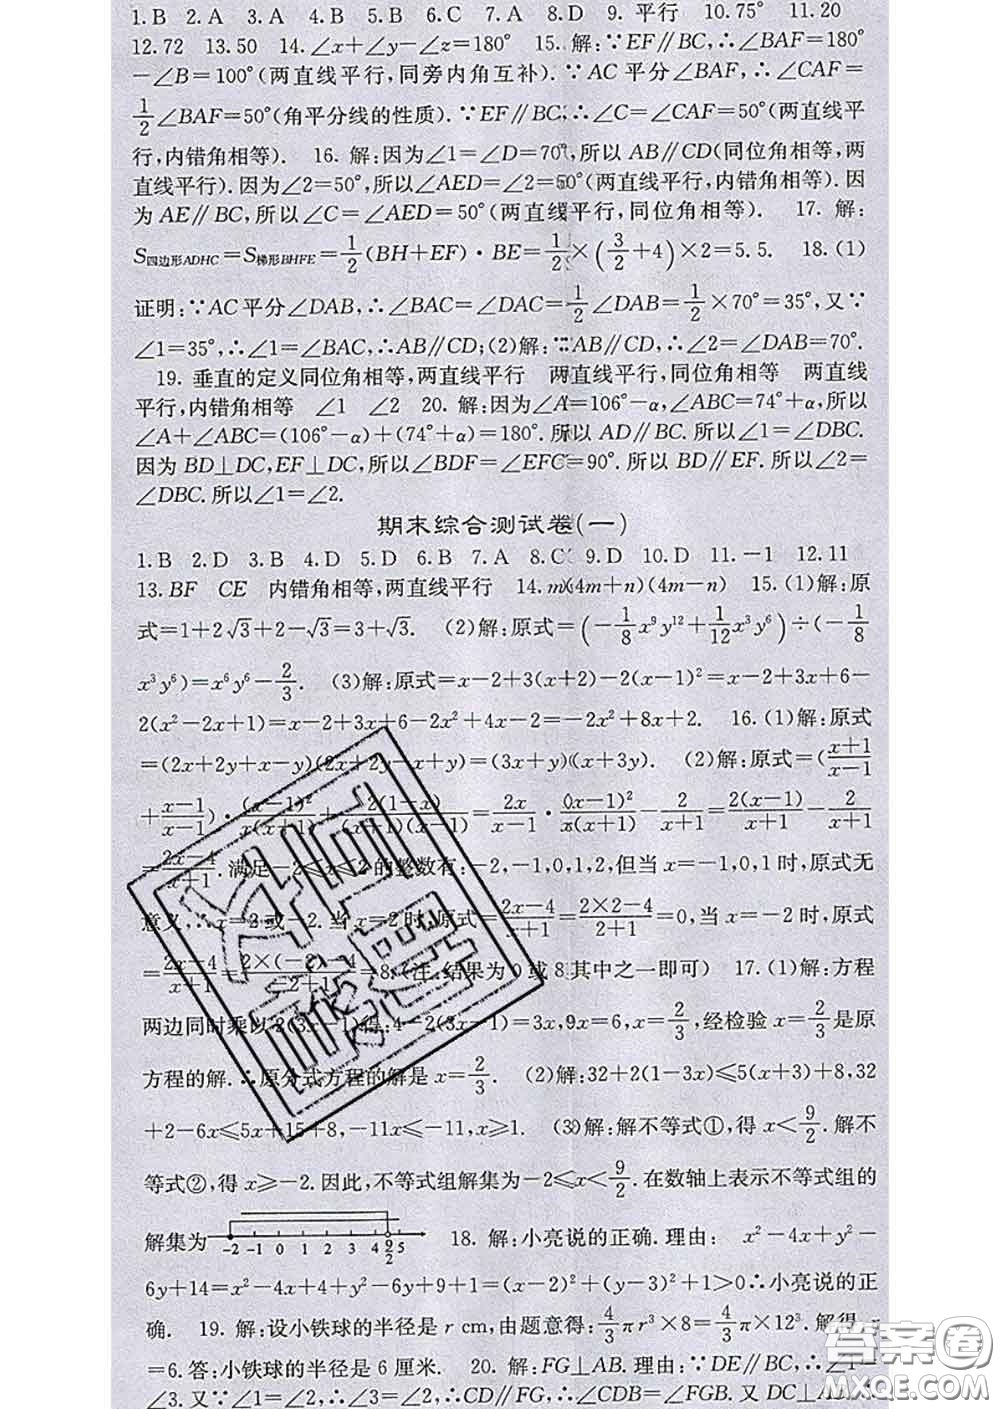 1.B 2.A 3.A 4.B 5.B 6.C 7.A 8.D 9.平行 10.75° 11.20
12.72 13.50 14.∠x+∠y-∠z=180° 15.解:∵EF∥BC,∴∠BAF=180°
-∠B=100°(两直线平行,同旁内角互补).∵AC平分∠BAF,∴∠CAF=
1/2∠BAF=50°(角平分线的性质).∵EF∥BC,∴∠C=∠CAF=50°(两直线平
行,内错角相等). 16.解:因为∠1=∠D=70°,所以AB∥CD(同位角相等,两
直线平行).因为∠2=50°,所以∠AED=∠2=50°(两直线平行,内错角相等).因
为AE∥BC,所以∠C=∠AED=50°(两直线平行,同位角相等). 17.解:
S四边形ADHC=S梯形BHFE=1/2(BH+EF)·BE=1/2×(3/2+4)×2=5.5. 18.(1)
证明:∵AC平分∠DAB,∴∠BAC=∠DAC=1/2∠DAB=1/2×70°=35°,又∵
∠1=35°,∴∠1=∠BAC,∴AB∥CD;(2)解:∵AB∥CD,∴∠2=∠DAB=70°.
19.垂直的定义同位角相等,两直线平行 两直线平行,同位角相等 两直线
平行,内错角相等 ∠1 ∠2 20.解:因为∠A=106°-α,∠ABC=74°+α,所以
∠A+∠ABC=(106°-α)+(74°+α)=180°.所以AD∥BC.所以∠1=∠DBC.
因为BD⊥DC,EF⊥DC,所以∠BDF=∠EFC=90°.所以BD∥EF.所以∠2=
∠DBC.所以∠1=∠2.
期末综合测试卷(一)
1.B 2.D 3.B 4.D 5.D 6.B 7.A 8.C 9.D 10.D 11.-1 12.11
13.BF CE 内错角相等,两直线平行 14.m(4m+n)(4m-n) 15.(1)解:原
式=1+2√3+2-√3=3+√3. (2)解:原式=(-1/8x⁹y¹²+1/12x³y⁶)÷(-1/8
x³y⁶)=x⁶y⁶-2/3. (3)解:原式=x-2+3(x+2)-2(x-1)²=x-2+3x+6-
2(x²-2x+1)=x-2+3x+6-2x²+4x-2=-2x²+8x+2. 16.(1)解:原式
=(2x+2y+x-y)(2x+2y-x+y)=(3x+y)(x+3y). (2)解:原式=((x+1)/(x-1)
+(x-1)/(x-1))·(x-1)²/(x(x+1))+2(1-x)/((x+1)(x-1))=2x/(x-1)·(x-1)²/(x(x+1))-2/(x+1)=2(x-1)/(x+1)-2/(x+1)
=(2x-4)/(x+1).满足-2≤x≤2的整数有:-2,-1,0,1,2,但当x=-1,0,1时,原式无
意义,∴x=2或-2.当x=2时,原式=(2x-4)/(x+1)=(2×2-4)/(2+1)=0,当x=-2时,原式
=(2x-4)/(x+1)=(2×(-2)-4)/(-2+1)=8.(注:结果为0或8其中之一即可) 17.(1)解:方程
两边同时乘以2(3x-1)得:4-2(3x-1)=3x,9x=6,x=2/3,经检验x=2/3是原
方程的解.∴原分式方程的解是x=2/3. (2)解:32+2(1-3x)≤5(x+3)+8,32
+2-6x≤5x+15+8,-11x≤-11,x≥1. (3)解:解不等式①,得x<9/2.解不
等式②,得x≥-2.因此,不等式组解集为-2≤x<9/2.在数轴上表示不等式组的
解集为 -2 -1 0 1 2 3 4 9/2 5 18.解:小亮说的正确.理由: x²-4x+y²-
6y+14=x²-4x+4+y²-6y+9+1=(x-2)²+(y-3)²+1>0∴小亮说的正
确. 19.解:设小铁球的半径是r cm,由题意得:4/3πr³×8=4/3π×12³.解得r
=6.答:小铁球的半径是6厘米. 20.解:FG⊥AB.理由:∵DE∥BC,∴∠1=
∠3.又∵∠1=∠2,∴∠3=∠2,∴CD∥FG,∴∠CDB=∠FGB.又DC⊥AB,
答案圈
MXQE.COM